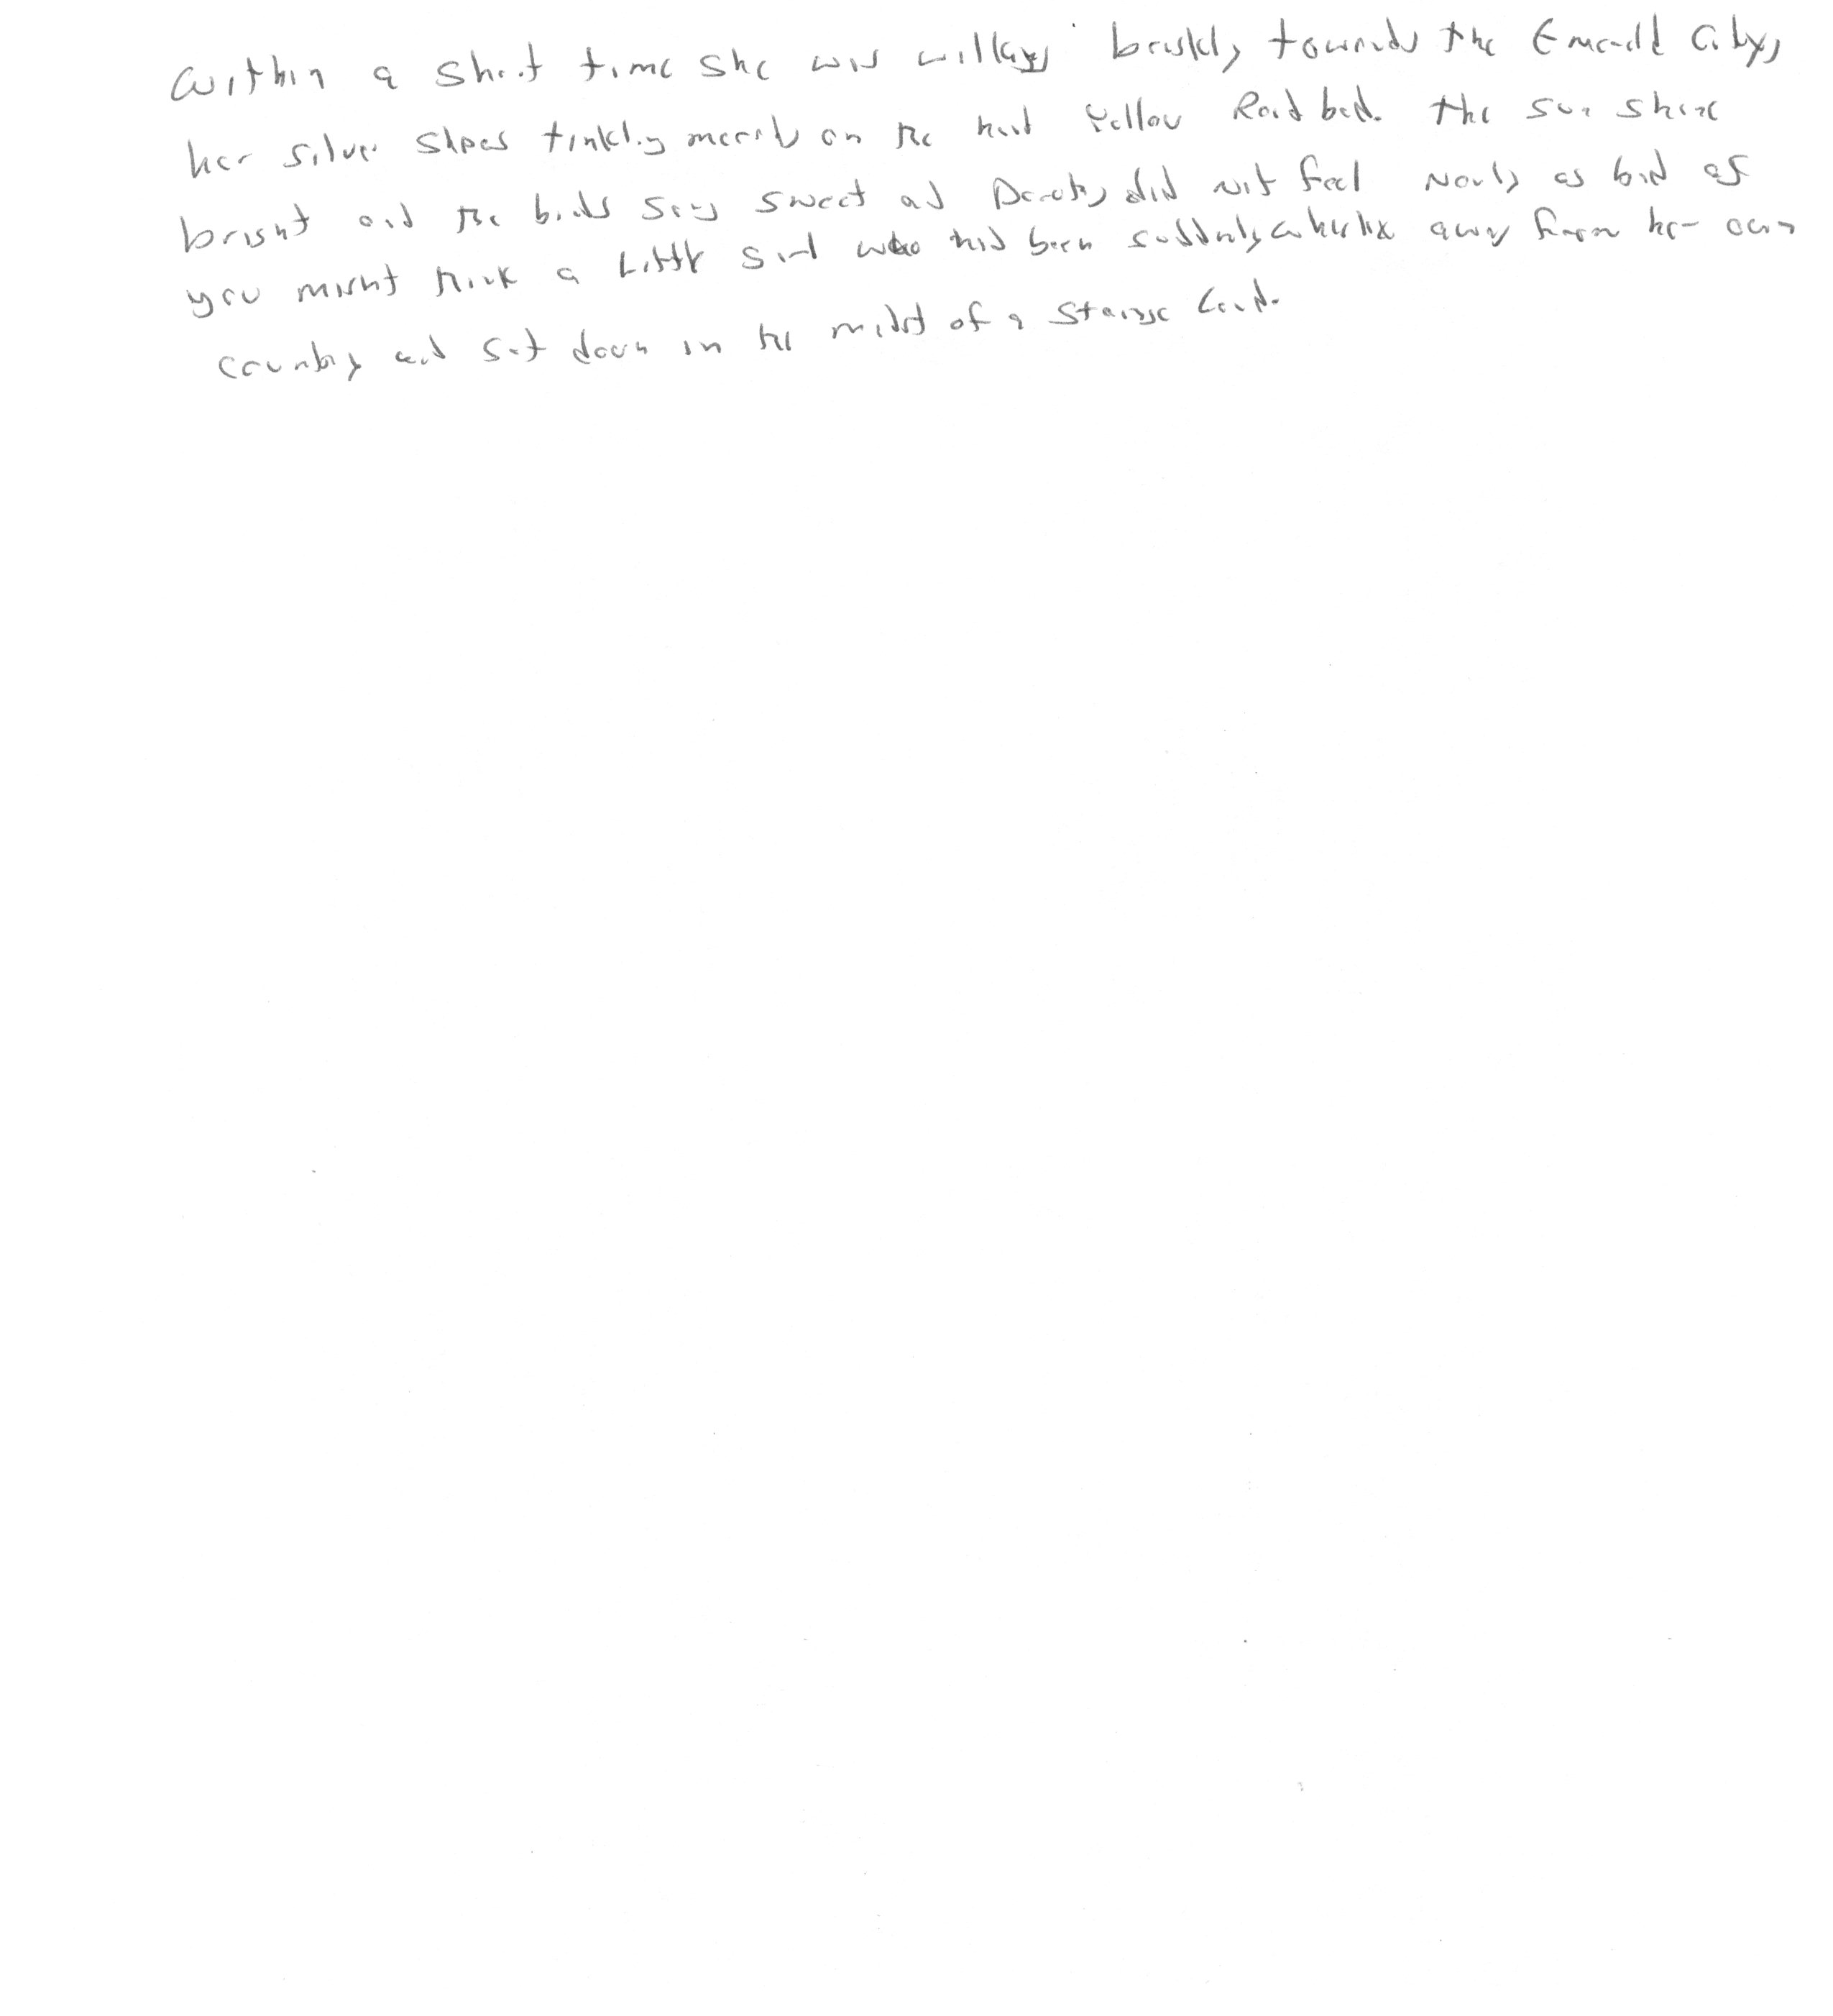 Within a short time she was walking briskly towards the Emerald City,
her silver shoes tinkling merrily on the hard Yellow Road bed. The sun shine
bright and the birds sang sweet and Dorothy did not feel nearly as bad as
you might think a little girl who had been suddenly whirled away from her own
country and set down in the midst of a strange land.